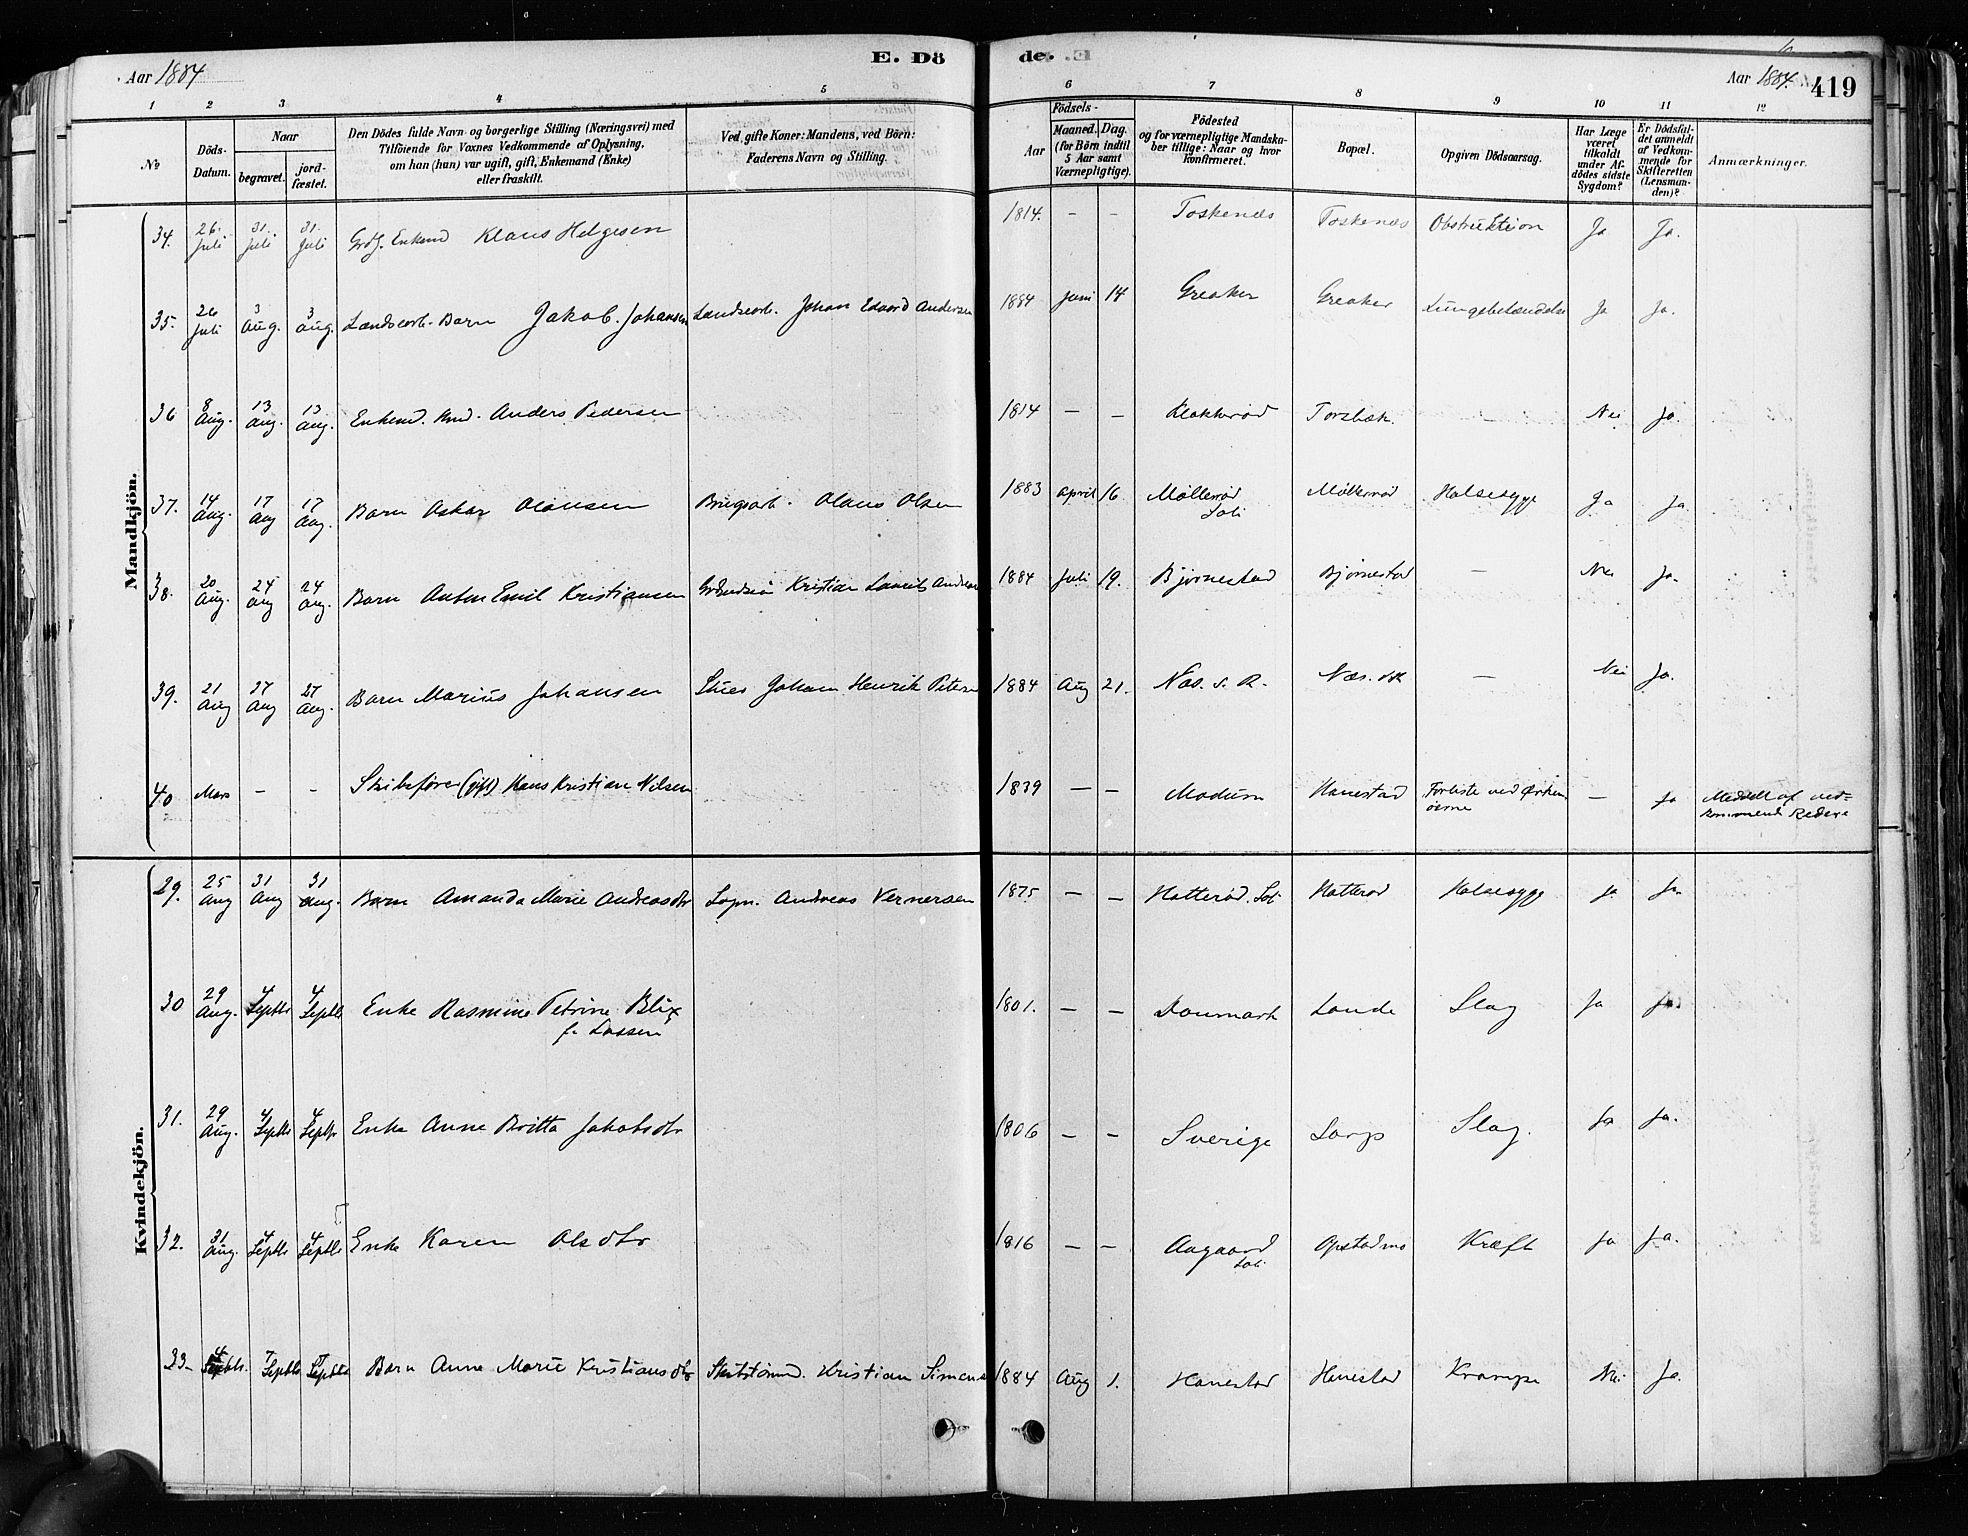 Aar 1884
E. Dö
de.
Aar 1884.
419
1 2 3 4 5 6 7 8 9 10 11 12
No
Döds-Datum.
Naar
begravet.
jord-fæstet.
Den Dödes fulde Navn og borgerlige Stilling (Næringsvei) med
Tilföiende for Voxnes Vedkommende af Oplysning,
om han (hun) var ugift, gift, Enkemand (Enke)
eller fraskilt.
Ved gifte Koner: Mandens, ved Börn:
Faderens Navn og Stilling.
Födsels-
Aar
Maaned. Dag.
(for Börn indtil
5 Aar samt
Værnepligtige).
Födested
og for værnepligtige Mandska-
ber tillige: Naar og hvor
konfirmeret.
Bopæl.
Opgiven Dödsaarsag.
Har Læge
været
tilkaldt
under Af-
dödes sidste
Sygdom?
Er Dödsfal-
det anmeldt
af Vedkom-
mende for
Skifteretten
(Lensman-
den)?
Anmærkninger.
Mandkjön.
34. 26. Juli 31. Juli 31. Juli Enkemd Klaus Helgesen 1814. – – Toskenæs Toskenæs Obstruktion Ja Ja.
35. 26 Juli 3 Aug. 3 Aug. Landsarb. Barn Jakob Johansen Landsarb. Johan Edvard Andersen 1884 Juni 14 Greaker Greaker Lungebetændelse Ja Ja.
36 8 Aug. 13 Aug. 13 Aug. Enkemd. Anders Pedersen 1814 – – Klokkerød Torsbæk. – Nei Ja.
37. 14 Aug. 17 Aug 17 Aug. Barn Oskar Olausen Brugsarb. Olaus Olsen 1883 April 16. Møllerrød Møllerrød Halsesyge Ja Ja
38. 20 Aug. 24 Aug 24 Aug. Barn Anton Emil Kristiansen Kristian Laurits 1884 Juli 19. Bjørnestad Bjørnestad – Nei Ja.
39. 21 Aug 27 Aug 27 Aug. Barn Marius Johansen Johan Henrik 1884 Aug 21. Næs. Næs. – Nei Ja.
40 Mars – – Skibsfører (gift) Hans Kristian Nilsen 1839 – – Modum Hanestad Forliste ved Ørken-
øerne – Ja Meddelt af ved-
kommende Rederi
Kvindekjön.
29. 25 Aug 31 Aug 31 Aug. Barn Amanda Marie Andreasdtr Andreas Vernersen 1875 – – Hatterød Hatterød Halsesyge Ja Ja
30 29 Aug. 4 Septbr 4 Septbr Enke Rasmine Petrine Blix
f. Lassen 1801. – – Danmark Lande Slag Ja Ja.
31. 29 Aug. 4 Septbr 4 Septbr Enke Anne Britta Jakobsdtr 1806 – – Sverige Slag. Ja Ja.
32. 31 Aug. 4 Septbr 4 Septbr Enke Karen Olsdtr 1816 – – Aagaard Opstadmo Kræft Ja Ja.
33. 4 Septbr. 7 Septbr 7 Septbr Barn Anne Marie Kristiansdtr Skibstømmd. Kristian Simens 1884 Aug 1. Hanestad Hanestad Krampe Nei Ja.